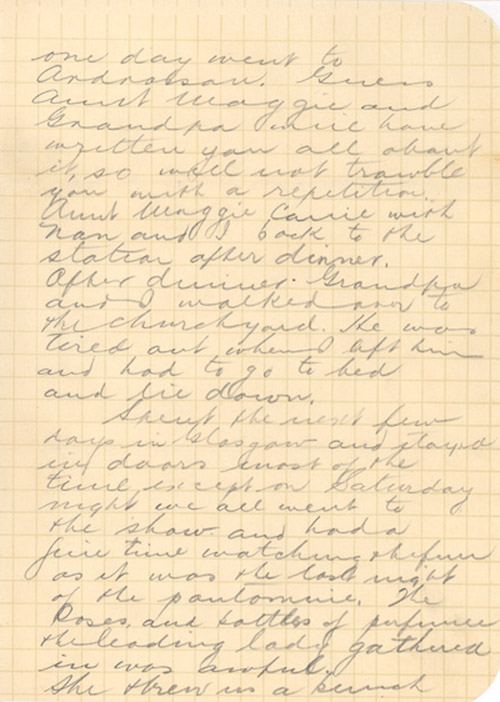 one day went to
Ardrossan. Guess
Aunt Maggie and
Grandpa will have
written you all about
it, so will not trouble
you with a repetition.
Aunt Maggie came with
Nan and I back to the
station after dinner.
After dinner Grandpa
and I walked over to
the churchyard. He was
tired out when I left him
and had to go to bed
and lie down.
Spent the next few
days in Glasgow and stayed
in doors most of the
time except on Saturday
night we all went to
the show and had a
fine time watching the fun
as it was the last night
of the pantomime. The
Roses, and bottles of perfume
the leading lady gathered
in was awful.
She threw us a bunch